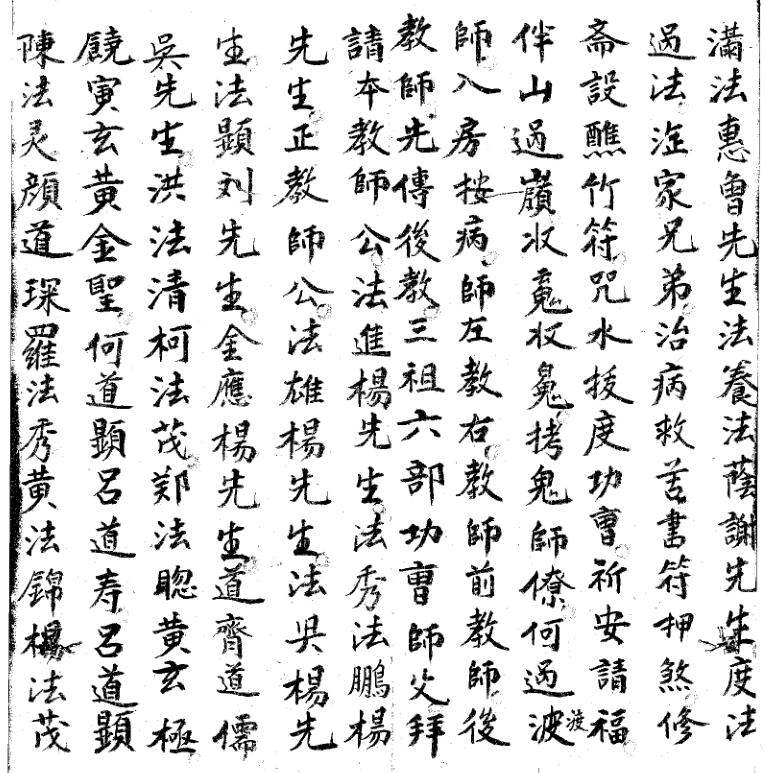 滿法惠魯先生法養法蔭謝先生度法
過法淀家兄弟治病救苦書符押煞修
斋設醮竹符咒水拔度功曹祈安請福
伴山過嶺收魂收鬼拷鬼師僚何過波渡
師入房按病師左教右教師前教師後
教師先傳後教三祖六部功曹師父拜
請本教師公法進楊先生法秀法鵬楊
先生正教師公法雄楊先生法吳楊先
生法顕刘先生金應楊先生道齊道儒
吳先生洪法清柯法茂鄭法聰黄玄極
饒寅玄黄金聖何道顕呂道寿呂道顕
陳法灵顔道琛羅法秀黄法錦楊法茂